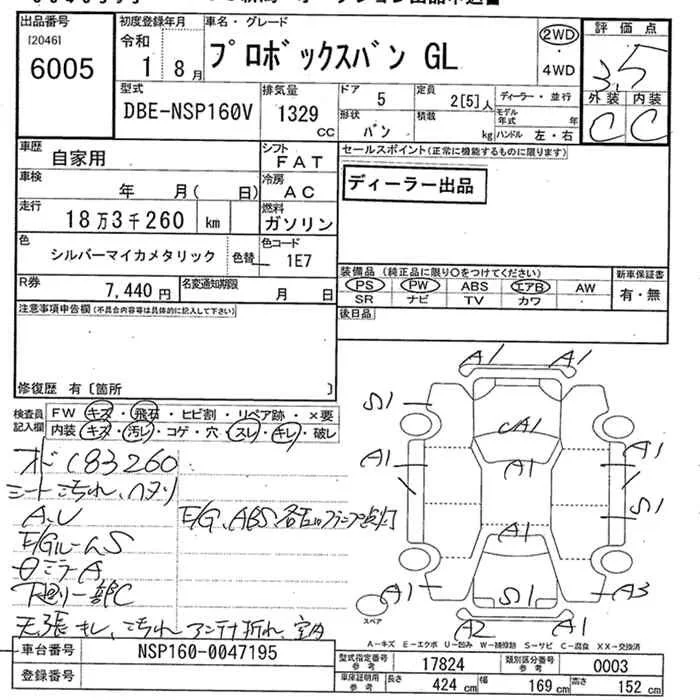 出品番号
[2046]
6005
初度登録年月
令和
1 8月
車名・グレード
プロボックスバン GL
2WD
・
4WD
評価点
3.5
外装 内装
C C
型式
DBE-NSP160V
排気量
1329
CC
ドア
5
定員
2[5]人
形状
バン
積載
kg
ディーラー・並行
モデル年式 年
ハンドル 左・右
車歴
自家用
シフト
FAT
車検
年 月( 日)
冷房
AC
走行
18万3千260 km
燃料
ガソリン
色
シルバーマイカメタリック
色替
色コード
1E7
R券
7,440円
名変通知期限
月 日
セールスポイント(正常に機能するものに限ります)
ディーラー出品
装備品(純正品に限り○をつけてください)
PS PW ABS エアB AW
SR ナビ TV カワ ・
新車保証書
有・無
後日品
注意事項申告欄(不具合内容等は具体的に記入して下さい)
修復歴 有〔箇所 〕
検査員記入欄
FW キズ・飛石・ヒビ割・リペア跡・×要
内装 キズ・汚レ・コゲ・穴・スレ・キレ・破レ
オド183260
シート汚れ、ヘタリ
A,U
E/G、ABS
点灯
E/GルームS
ミラーA
下廻り一部C
天張キレ、汚れ アンテナ折れ、室A
A1 A1
S1
CA1
A1 A1 A1
S1
A1
A1 S1 A3
A2 A1
スペア
A-キズ E-エクボ U-凹み W-補修跡 S-サビ C-腐食 XX-交換済
車台番号
NSP160-0047195
登録番号
型式指定番号 参考
17824
類別区分番号 参考
0003
車庫証明用 参考
長さ 424 cm 幅 169 cm 高さ 152 cm